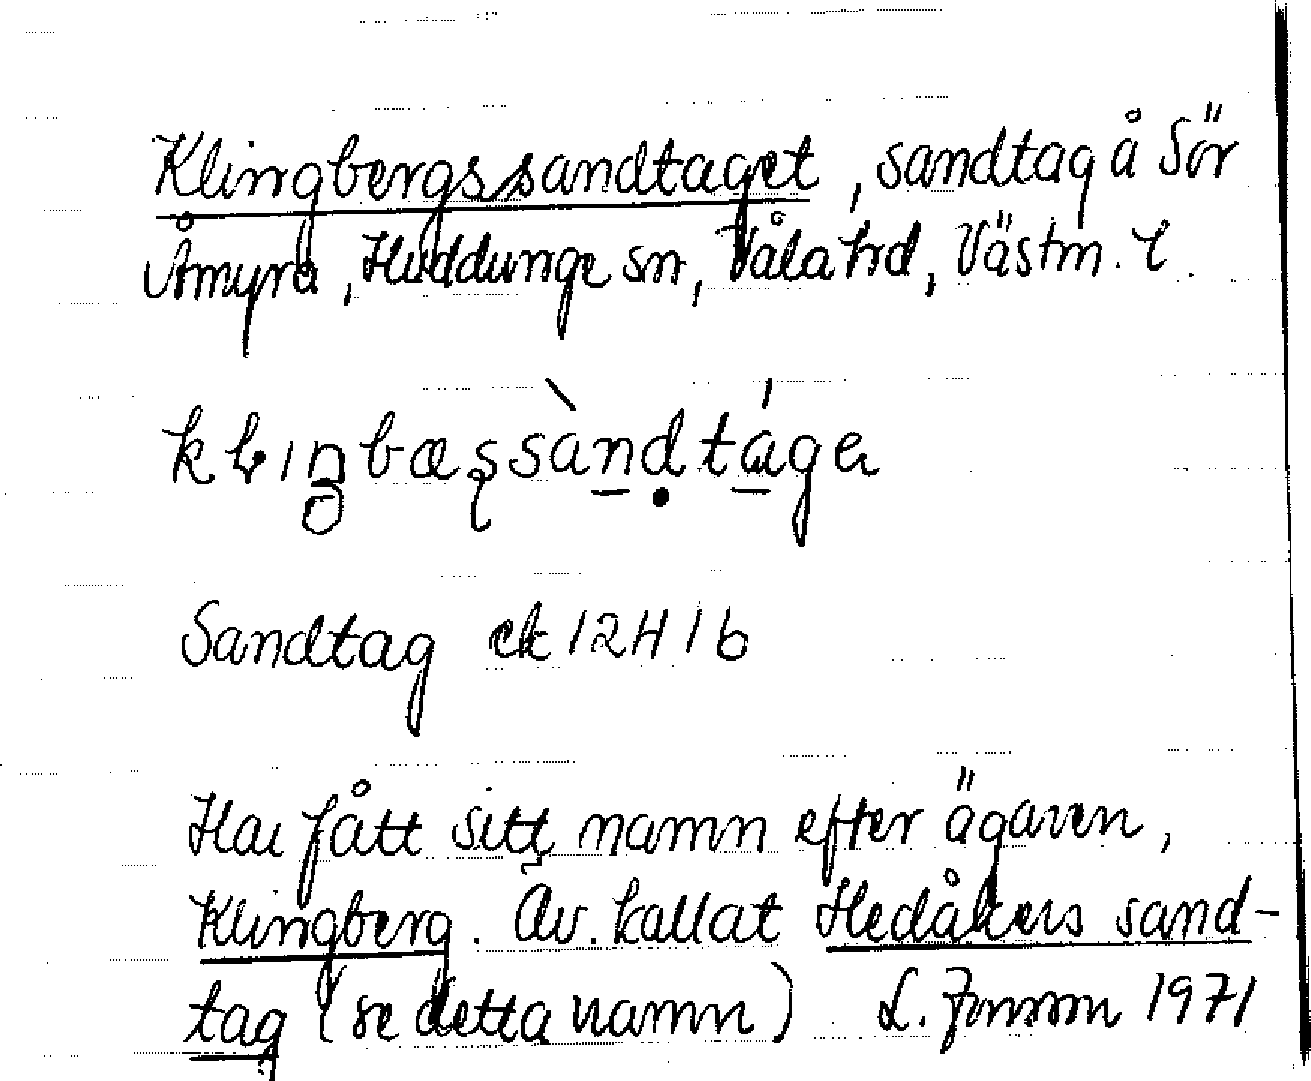 Klingbergssandtaget, sandtag å Sör
Åmyra, Huddunge sn, Våla hd, Västm. l.
Sandtag ek 12H 1b
Har fått sitt namn efter ägaren,
Klingberg. Äv. kallat Hedåkers sand-
tag (se detta namn) L. Jonsson 1971